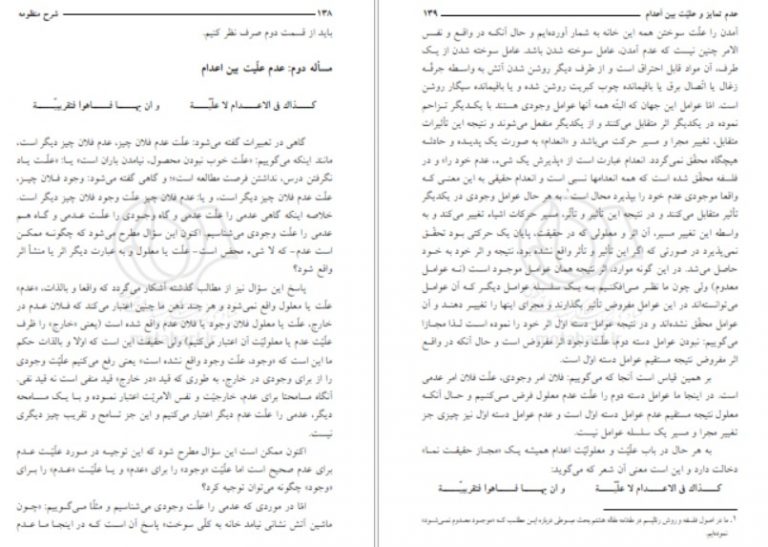 ۱۳۸ شرح منظومه
باید از قسمت دوم صرف نظر کنیم.
مسأله دوم: عدم علّیت بین اعدام
کـذاك فی الاعـدام لا علّیّـة و ان بهـا فـاهوا فتقریبیّـة
گاهی در تعبیرات گفته می‌شود: علّت عدم فلان چیز، عدم فلان چیز دیگر است،
مانند اینکه می‌گوییم: «علّت خوب نبودن محصول، نیامدن باران است» یـا: «علّـت یـاد
نگرفتن درس، نداشتن فرصت مطالعه است»؛ و گاهی گفته می‌شود: وجود فـلان چیـز،
علّت عدم فلان چیز دیگر است، و یا: عدم فلان چیز علّت وجود فلان چیز دیگر است.
خلاصه اینکه گاهی عدمی را علّت عدمی و گاه وجـودی را علّـت عـدمی و گـاه هـم
عدمی را علّت وجودی می‌شناسیم. اکنون این سؤال مطرح می‌شود که چگونـه ممکـن
است عدم- که لا شیء محض است- علّت یا معلول و به عبارت دیگر اثر یا منشأ اثر
واقع شود؟
پاسخ این سؤال نیز از مطالب گذشته آشکار می‌گردد که واقعا و بالذات، «عدم»
علّت یا معلول واقع نمی‌شود و هر چند ذهن ما چنین اعتبار می‌کند که فـلان عـدم در
خارج، علّت یا معلول فلان وجود یا فلان عدم واقع شده است (یعنی «خارج» را ظرف
علّیّت عدم یا معلولیّت آن اعتبار می‌کنیم) ولی حقیقت این است که اولا و بالذات حکم
ما این است که «وجود، علّت وجود واقع نشده است» یعنی رفع می‌کنیم علّیّت وجودی
را از برای وجودی در خارج، به طوری که قید «در خارج» قید منفی است نه قید نفی،
آنگاه مسامحتا برای عدم، خارجیّت و نفس الامریّت اعتبار نمـوده و بـا یـک مـسامحه
دیگر، عدمی را علّت عدم دیگر اعتبار می‌کنیم و این جز تسامح و تقریب چیز دیگری
نیست.
اکنون ممکن است این سؤال مطرح شود که این توجیـه در مـورد علّیّـت عـدم
برای عدم صحیح است اما علّیّت «وجود» را برای «عدم» و یـا علّیّـت «عـدم» را بـرای
«وجود» چگونه می‌توان توجیه کرد؟
امّا در موردی که عدمی را علّت وجودی می‌شناسیم و مثلًا مـی‌گـوییم: «چـون
ماشین آتش نشانی نیامد خانه به کلّی سوخت» پاسخ آن است کـه در اینجـا مـا عـدم
عدم تمایز و علیّت بین اعدام ۱۳۹
آمدن را علّت سوختن همه این خانه به شمار آورده‌ایم و حال آنکـه در واقـع و نفـس
الامر چنین نیست که عدم آمدن، عامل سوخته شدن باشد. عامل سوخته شدن از یـک
طرف، آن مواد قابل احتراق است و از طرف دیگر روشن شدن آتش به واسطه جرقّـه
زغال یا اتّصال برق یا باقیمانده چوب کبریت روشن شده و یا باقیمانده سیگار روشن
است. امّا عوامل این جهان که البتّه همه آنها عوامل وجودی هستند با یکـدیگر تـزاحم
نموده در یکدیگر اثر متقابل می‌کنند و از یکدیگر منفعل می‌شوند و نتیجه این تأثیرات
متقابل، تغییر مجرا و مسیر حرکت می‌باشد و «انعدام» به صورت یک پدیـده و حادثـه
هیچگاه محقّق نمی‌گردد. انعدام عبارت است از «پذیرش یک شیء، عدم خود را» و در
فلسفه محقّق شده است که همه انعدامها نسبی است و انعدام حقیقی به این معنـی کـه
واقعا موجودی عدم خود را بپذیرد محال است.۱ به هر حال عوامل وجودی در یکدیگر
تأثیر متقابل می‌کنند و در نتیجه این تأثیر و تأثّر، مسیر حرکات اشیاء تغییر می‌کند و به
واسطه این تغییر مسیر، آن اثر و معلولی که در حقیقت، پایان یک حرکتی بـود تحقّـق
نمی‌پذیرد در صورتی که اگر این تأثیر و تأثّر واقع نشده بود، نتیجه و اثر خود به خـود
حاصل می‌شد. در این گونه موارد، اثر نتیجه همان عوامـل موجـود اسـت (نـه عوامـل
معدوم) ولی چون ما نظر مـی‌افکنـیم بـه یـک سلـسله عوامـل دیگـر کـه آن عوامـل
می‌توانسته‌اند در این عوامل مفروض تأثیر بگذارند و مجرای اینها را تغییـر دهنـد و آن
عوامل محقّق نشده‌اند و در نتیجه عوامل دسته اول اثر خود را نموده است لـذا مجـازا
می‌گوییم: نبودن عوامل دسته دوم، علّت وجود اثر مفروض است و حال آنکه در واقـع
اثر مفروض نتیجه مستقیم عوامل دسته اوّل است.
بر همین قیاس است آنجا که می‌گوییم: فلان امر وجودی، علّت فلان امر عدمی
است. در اینجا ما عوامل دسته دوم را علّت عدم معلول فرض می‌کنـیم و حـال آنکـه
معلول نتیجه مستقیم عدم عوامل دسته اوّل است و عدم عوامل دسته اوّل نیز چیزی جز
تغییر مجرا و مسیر یک سلسله عوامل نیست.
به هر حال در باب علّیّت و معلولیّت اعدام همیشه یـک «مجـاز حقیقـت نمـا»
دخالت دارد و این است معنی آن شعر که می‌گوید:
کـذاك فی الاعـدام لا علّیّـة و ان بهـا فـاهوا فتقریبیّـة
۱. ما در اصول فلسفه و روش رئالیسم در مقدمه مقاله هشتم بحث مبسوطی درباره ایس مطلب کـه «موجـود معـدوم نمی‌شـود»
نموده‌ایم.